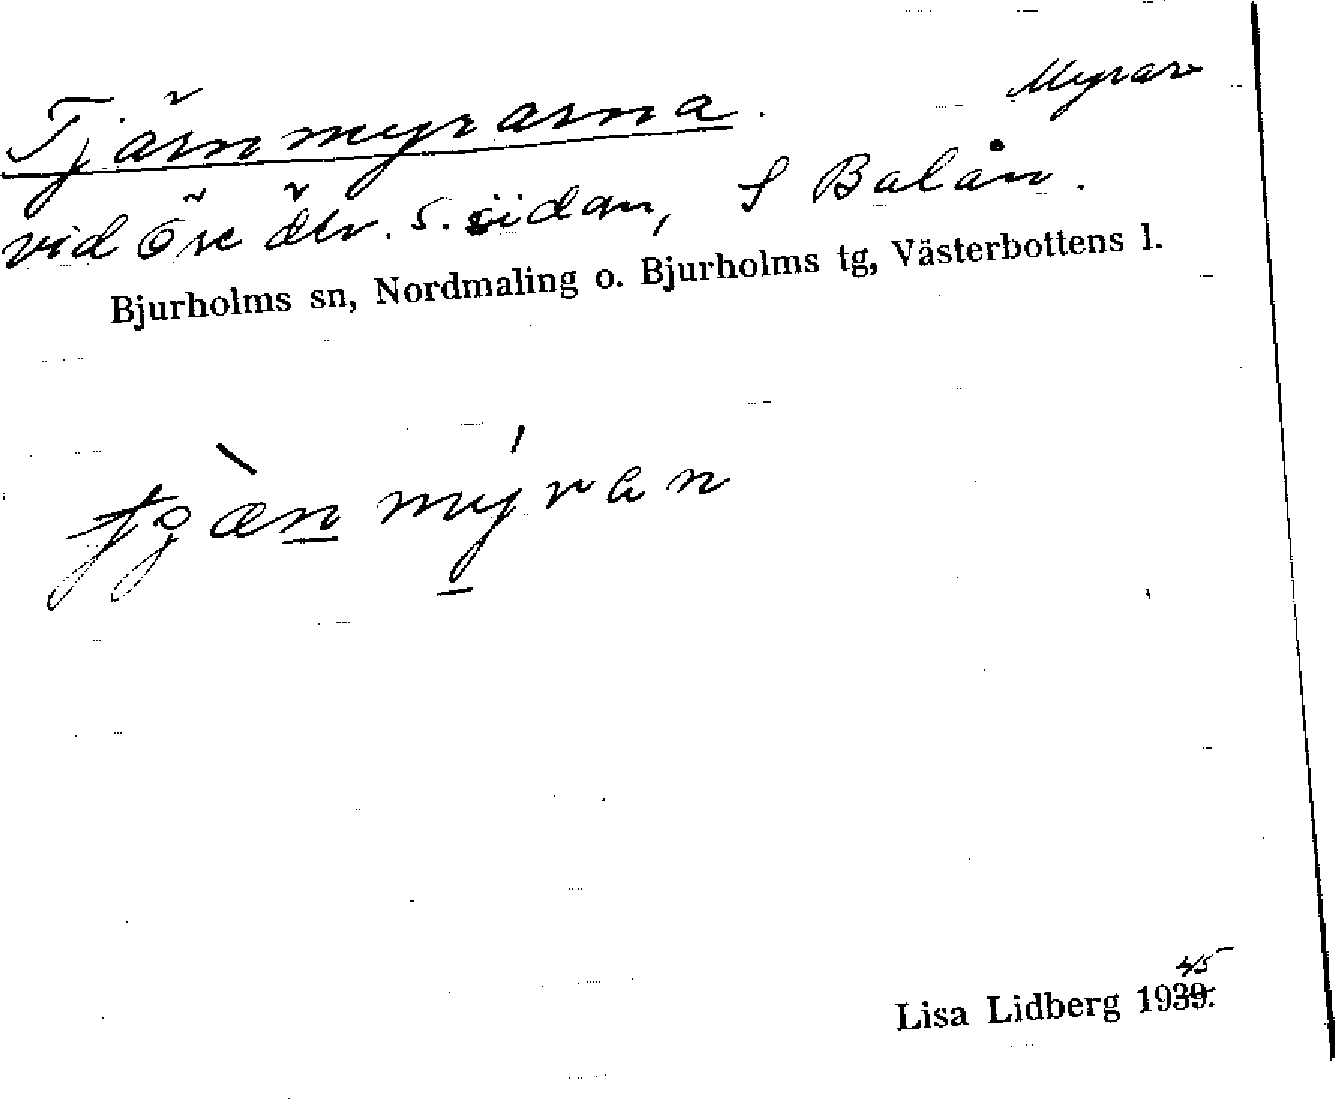 Myrar
Tjärnmyrarna.
vid Öre älv. s. sidan, S Balån.
Bjurholms sn, Nordmaling o. Bjurholms tg, Västerbottens l.
mýran
45
Lisa Lidberg 1939.